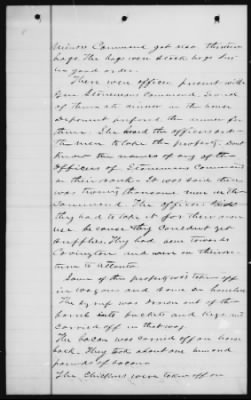 Minors Command got also thirteen
hogs. The hogs were stock hogs but
in good order.
There were officers present with
Gen Stonemans Command. Several
of them ate dinner in the house
Deponent prepared the dinner for
them. She heard the officers order
the men to take the property. Dont
know the names of any of the
Officers of Stonemans Command
on their route. It was said there
was twenty thousand men in the
Command. The officers said
they had to take it for their own
use because they could not get
supplies. They had been towards
Covington and were on their
return to Atlanta.
Some of the property was taken off
in wagons and some on horseback.
The syrup was drawn out of the
barrels into buckets and kegs and
carried off in that way.
The bacon was carried off on horse
back. They took about one hundred
pounds of bacon.
The Chickens were taken off on